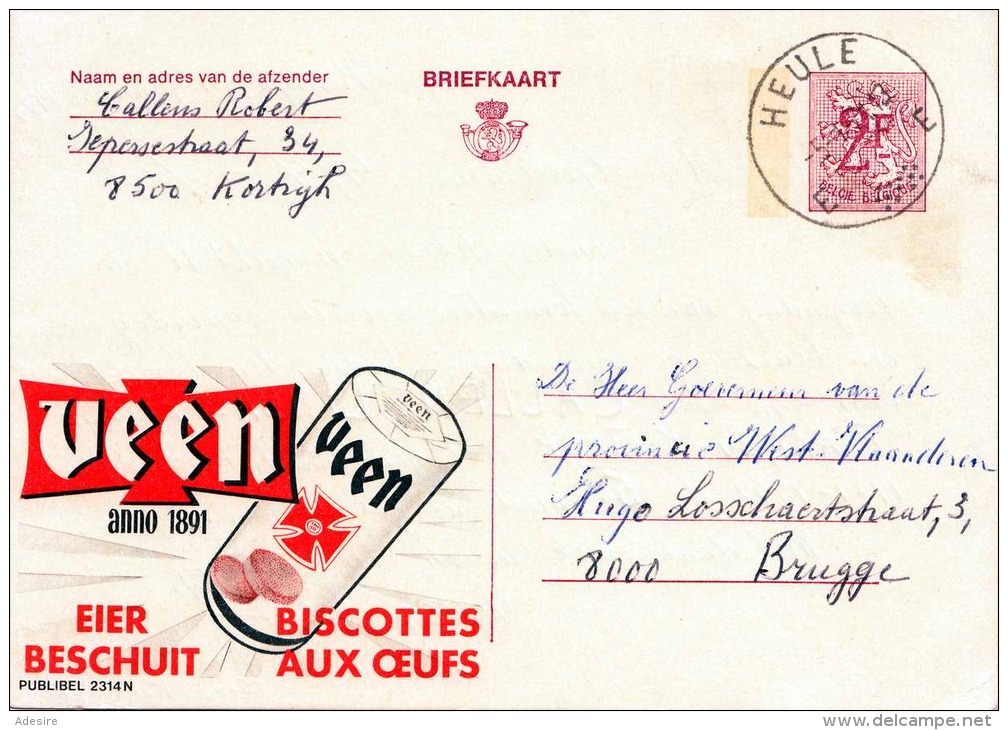 Naam en adres van de afzender
Callens Robert
Iepersestraat, 34,
8500 Kortrijk
BRIEFKAART
HEULE
2F
BELGIE BELGIQUE
veen
anno 1891
veen
veen
EIER
BESCHUIT
BISCOTTES
AUX ŒUFS
PUBLIBEL 2314 N
De Heer Goeverneur van de
provincie West-Vlaanderen
Hugo Losschaertstraat, 3,
8000 Brugge
Adesire
http://www.delcampe.net